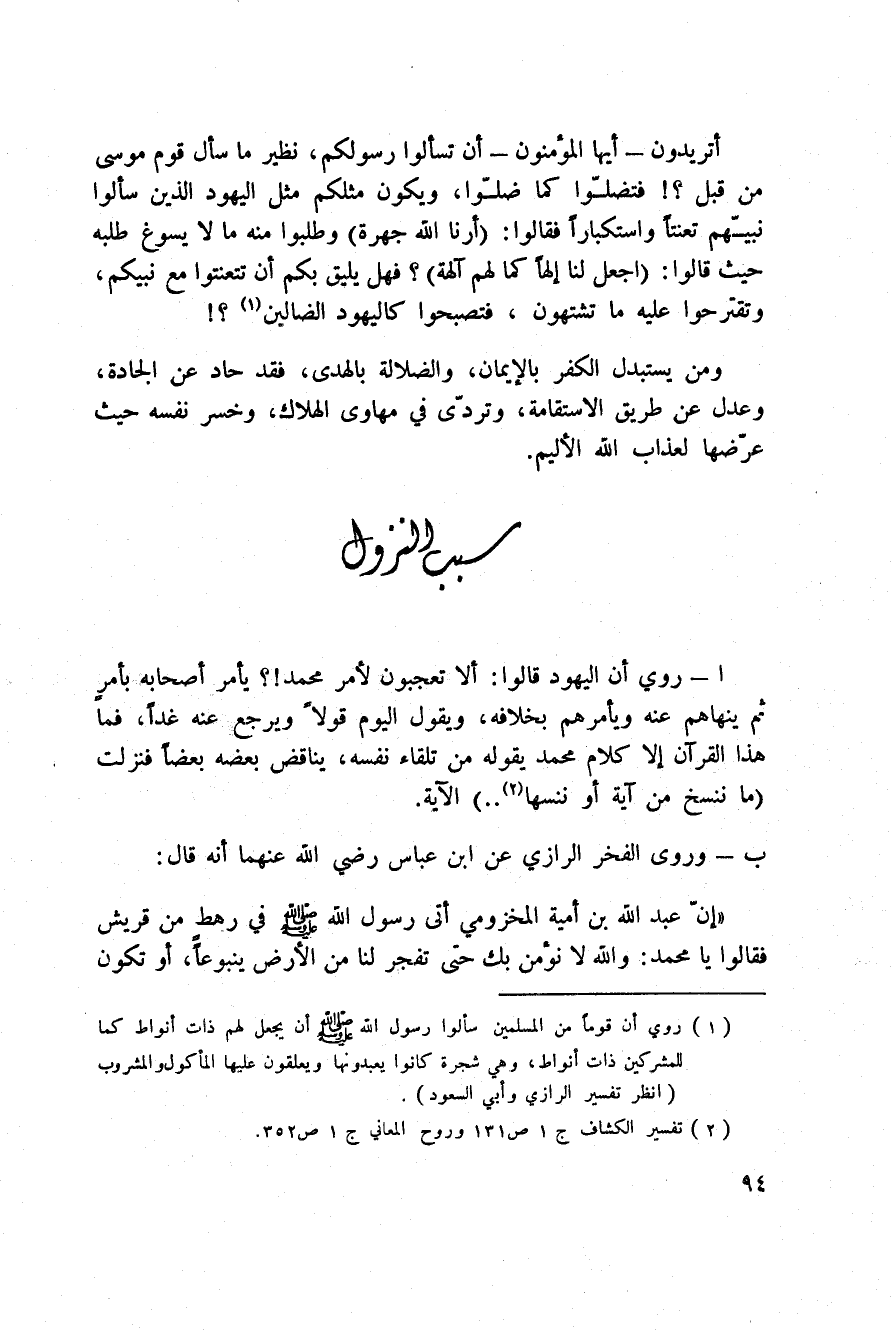 أتريدون – أيها المؤمنون – أن تسألوا رسولكم، نظير ما سأل قوم موسى
من قبل ؟! فتضلـّوا كما ضلـّوا، ويكون مثلكم مثل اليهود الذين سألوا
نبيـّهم تعنتاً واستكباراً فقالوا: (أرنا الله جهرة) وطلبوا منه ما لا يسوغ طلبه
حيث قالوا: (اجعل لنا إلهاً كما لهم آلهة) ؟ فهل يليق بكم أن تتعنتوا مع نبيكم،
وتقترحوا عليه ما تشتهون ، فتصبحوا كاليهود الضالين(١) ؟!
ومن يستبدل الكفر بالإيمان، والضلالة بالهدى، فقد حاد عن الجادة،
وعدل عن طريق الاستقامة، وتردّى في مهاوى الهلاك، وخسر نفسه حيث
عرّضها لعذاب الله الأليم.
سبب النزول
ا – روي أن اليهود قالوا: ألا تعجبون لأمر محمد!؟ يأمر أصحابه بأمرٍ
ثم ينهاهم عنه ويأمرهم بخلافه، ويقول اليوم قولاً ويرجع عنه غداً، فما
هذا القرآن إلا كلام محمد يقوله من تلقاء نفسه، يناقض بعضه بعضاً فنزلت
(ما ننسخ من آية أو ننسها(٢)..) الآية.
ب – وروى الفخر الرازي عن ابن عباس رضي الله عنهما أنه قال:
«إنّ عبد الله بن أمية المخزومي أتى رسول الله ﷺ في رهط من قريش
فقالوا يا محمد: والله لا نؤمن بك حتّى تفجر لنا من الأرض ينبوعاً، أو تكون
(١) روي أن قوماً من المسلمين سألوا رسول الله ﷺ أن يجعل لهم ذات أنواط كما
للمشركين ذات أنواط، وهي شجرة كانوا يعبدونها ويعلقون عليها المأكول والمشروب
(انظر تفسير الرازي وأبي السعود) .
(٢) تفسير الكشاف ج ١ ص١٣١ وروح المعاني ج ١ ص٣٥٢.
٩٤